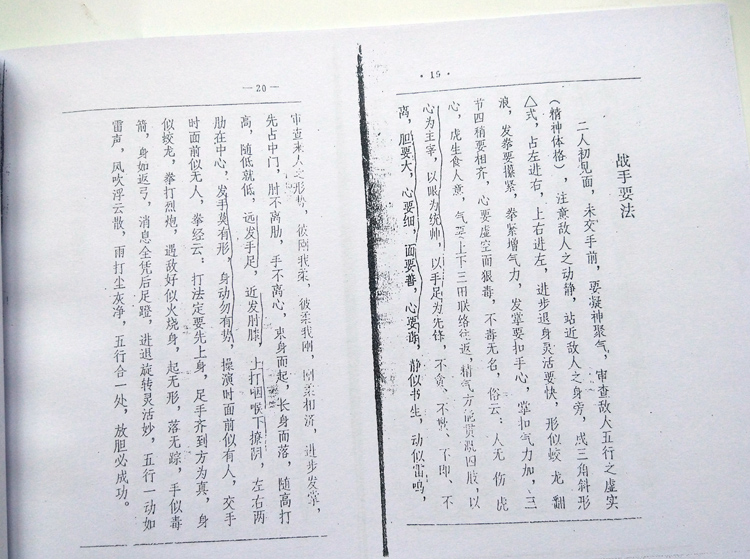 ·19·
战手要法
二人初见面，未交手前，要凝神聚气，审查敌人五行之虚实
（精神体格），注意敌人之动静，站近敌人之身旁，成三角斜形
△式，占左进右，上右进左，进步退身灵活要快，形似蛟龙翻
浪，发拳要攥紧，拳紧增气力，发掌要扣手心，掌扣气力加，三
节四稍要相齐，心要虚空而狠毒，不毒无名，俗云：人无伤虎
心，虎生食人意，气要上下三田联络往返，精气方能贯溉四肢，以
心为主宰，以眼为统帅，以手足为先锋，不贪、不欺、不即、不
离，胆要大，心要细，面要善，心要毒，静似书生，动似雷鸣，
—20—
审查来人之形势，彼刚我柔，彼柔我刚，刚柔相济，进步发掌，
先占中门，肘不离肋，手不离心，束身而起，长身而落，随高打
高，随低就低，远发手足，近发肘膝，上打咽喉下撩阴，左右两
肋在中心，发手莫有形，身动勿有势，操演时面前似有人，交手
时面前似无人，拳经云：打法定要先上身，足手齐到方为真，身
似蛟龙，拳打烈炮，遇敌好似火烧身，起无形，落无踪，手似毒
箭，身如返弓，消息全凭后足蹬，进退旋转灵活妙，五行一动如
雷声，风吹浮云散，雨打尘灰净，五行合一处，放胆必成功。